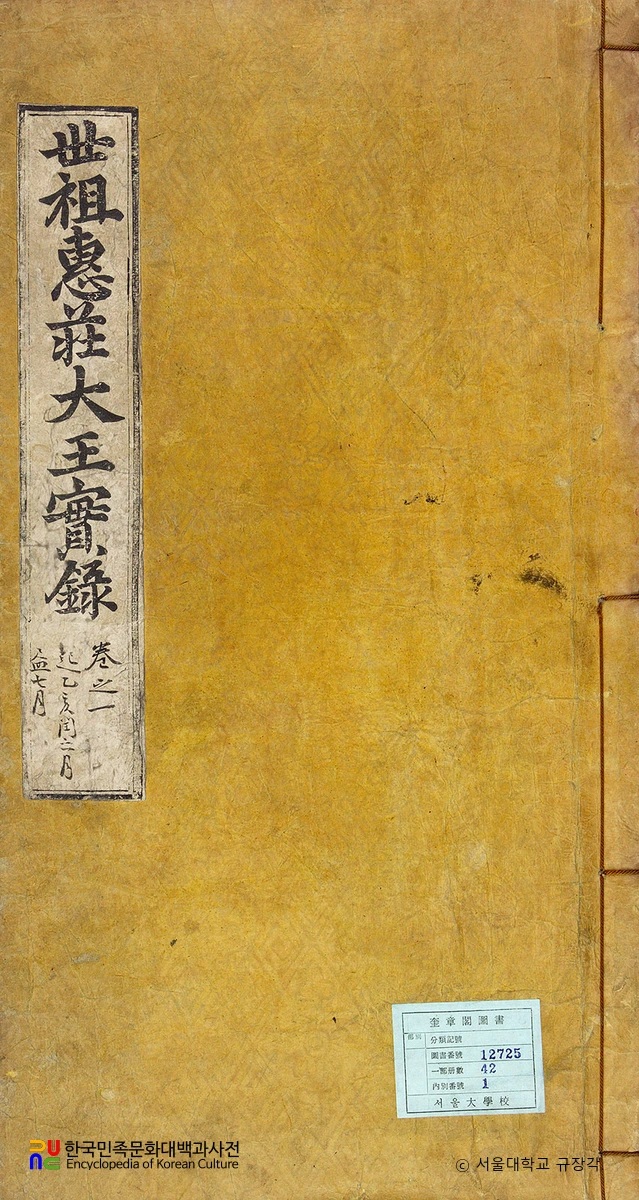 世祖惠莊大王實錄
卷之一
起乙亥閏六月
七月
奎章閣圖書
分類記號
圖書番號 12725
一部册數 42
內別番號 1
서울大學校
한국민족문화대백과사전
Encyclopedia of Korean Culture
© 서울대학교 규장각